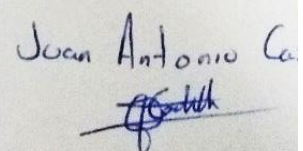 Juan Antonio Ca